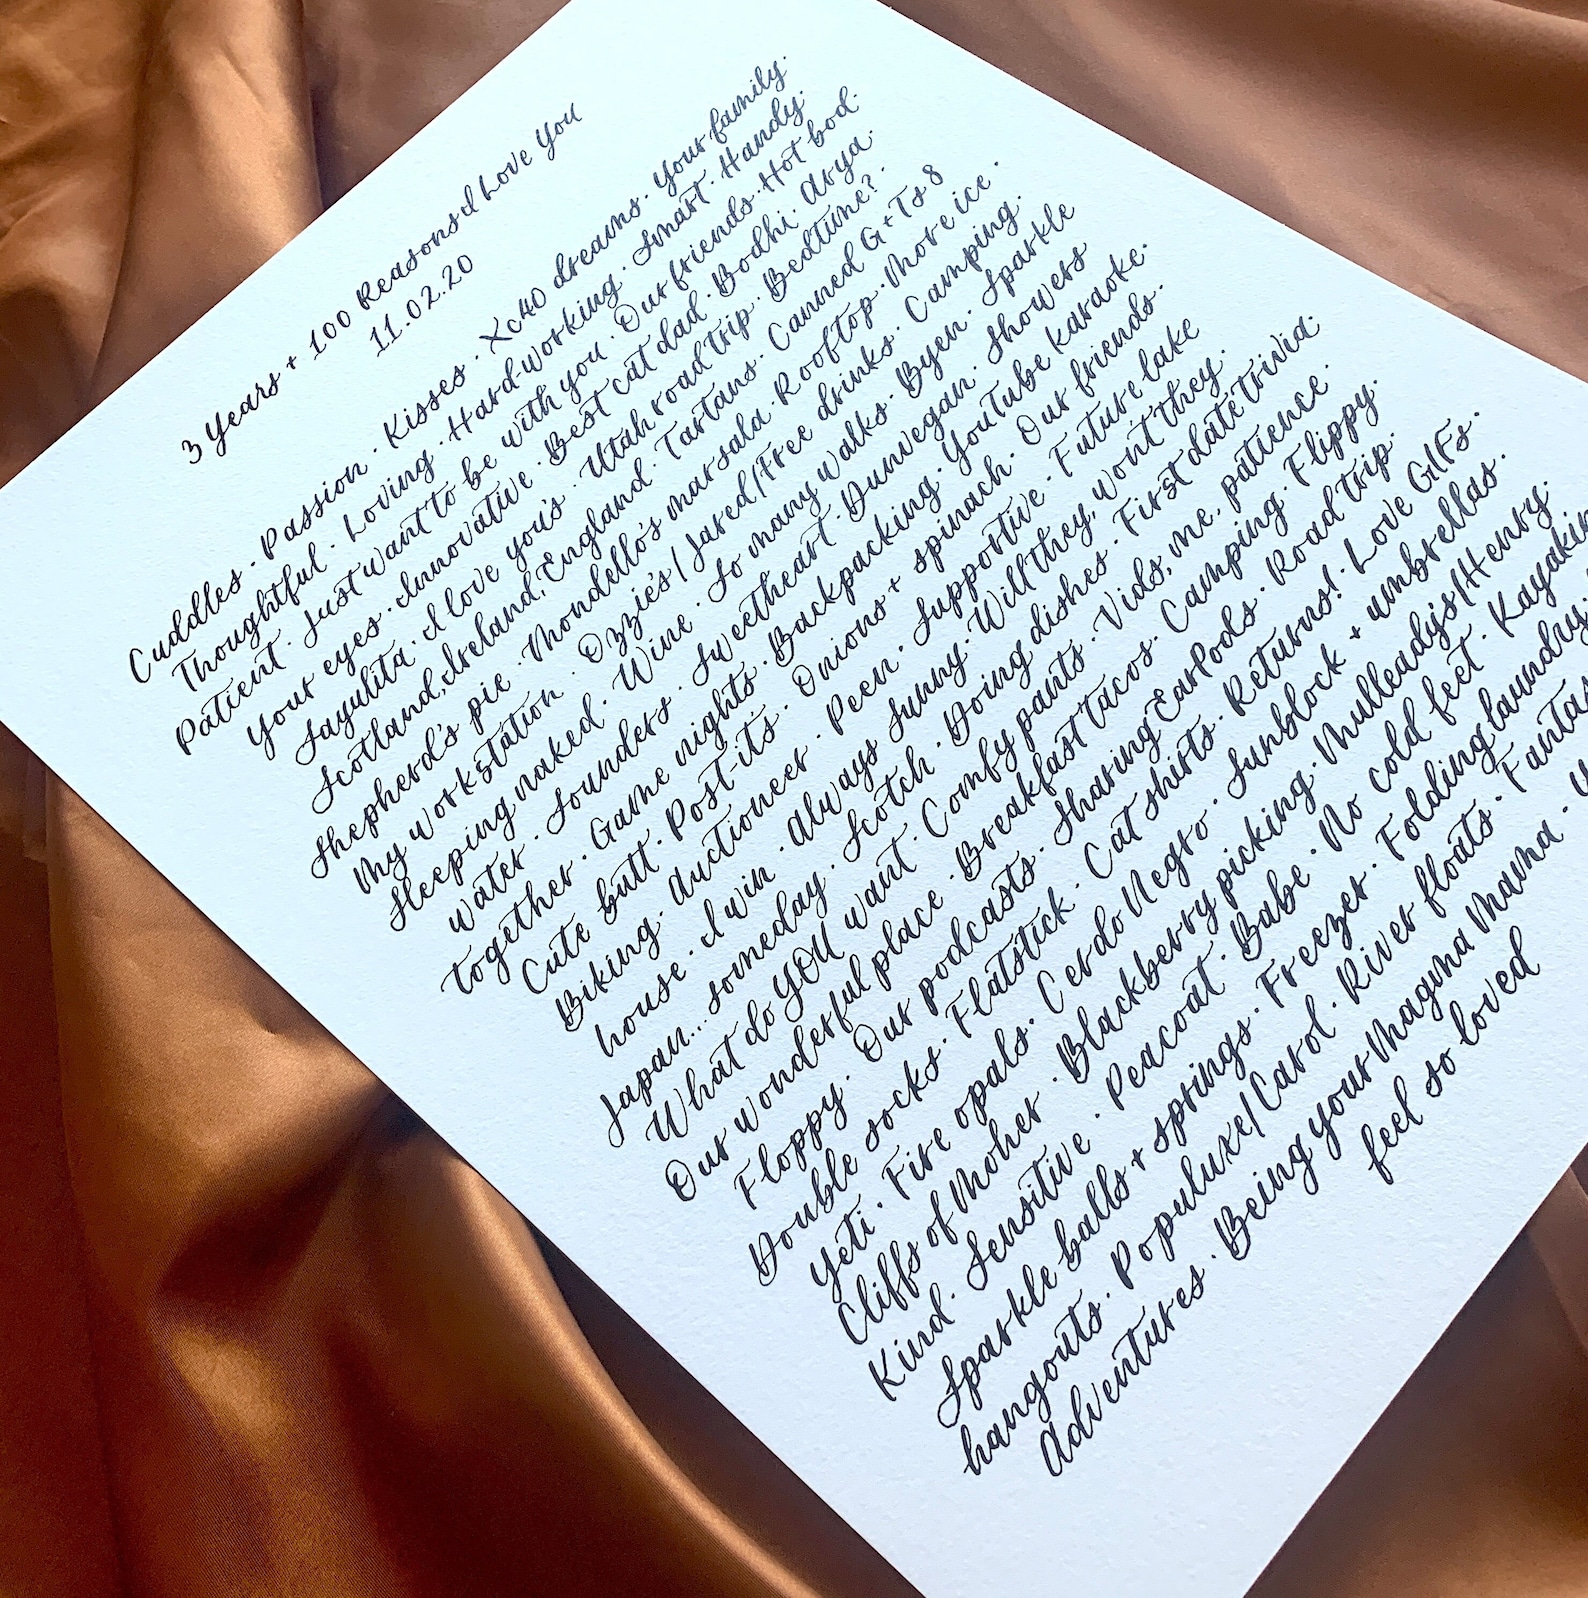 3 Years + 100 Reasons I Love You
11.02.20
Cuddles · Passion · Kisses · XC40 dreams · Your family ·
Thoughtful · Loving · Hardworking · Smart · Handy ·
Patient · Just want to be with you · Our friends · Hot bod ·
Your eyes · Innovative · Best cat dad · Bodhi · Arya ·
Sayulita · I love you's · Utah road trip · Bedtime? ·
Scotland, Ireland, England · Tartans · Canned G+Ts 8
Shepherd's pie · Mondello's marsala · Rooftop · More ice ·
My workstation · Ozzie's / Jared / Free drinks · Camping ·
Sleeping naked · Wine · So many walks · Byen · Sparkle
water · Sounders · Sweetheart · Dunvegan · Showers
together · Game nights · Backpacking · YouTube karaoke ·
Cute butt · Post-it's · Onions + spinach · Our friends ·
Biking · Auctioneer · Peen · Supportive · Future lake
house · I win · Always Sunny · Will they, won't they ·
Japan... someday · Scotch · Doing dishes · First date trivia ·
What do YOU want · Comfy pants · Vids, me, patience ·
Our wonderful place · Breakfast tacos · Camping · Flippy ·
Floppy · Our podcasts · Sharing EarPods · Road trip ·
Double socks · Flatstick · Cat shirts · Returns! · Love GIFs ·
Yeti · Fire opals · Cerdo Negro · Sunblock + umbrellas ·
Cliffs of Moher · Blackberry picking · Mulleady's / Henry ·
Kind · Sensitive · Peacoat · Babe · No cold feet · Kayakin
Sparkle balls + springs · Freezer · Folding laundry ·
hangouts · Populuxe / Carol · River floats · Fantas
Adventures · Being your Maguna Mama ·
feel so loved